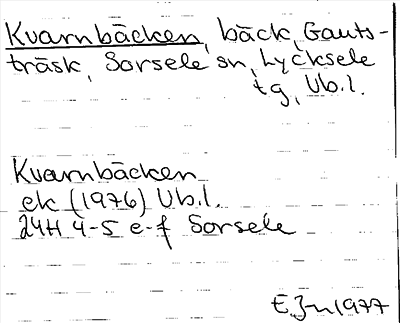 Kvarnbäcken, bäck, Gauts-
träsk, Sorsele sn, Lycksele
tg, Vb.l.
Kvarnbäcken
ek (1976) Vb.l.
24H 4-5 e-f Sorsele
E.J-n 1977